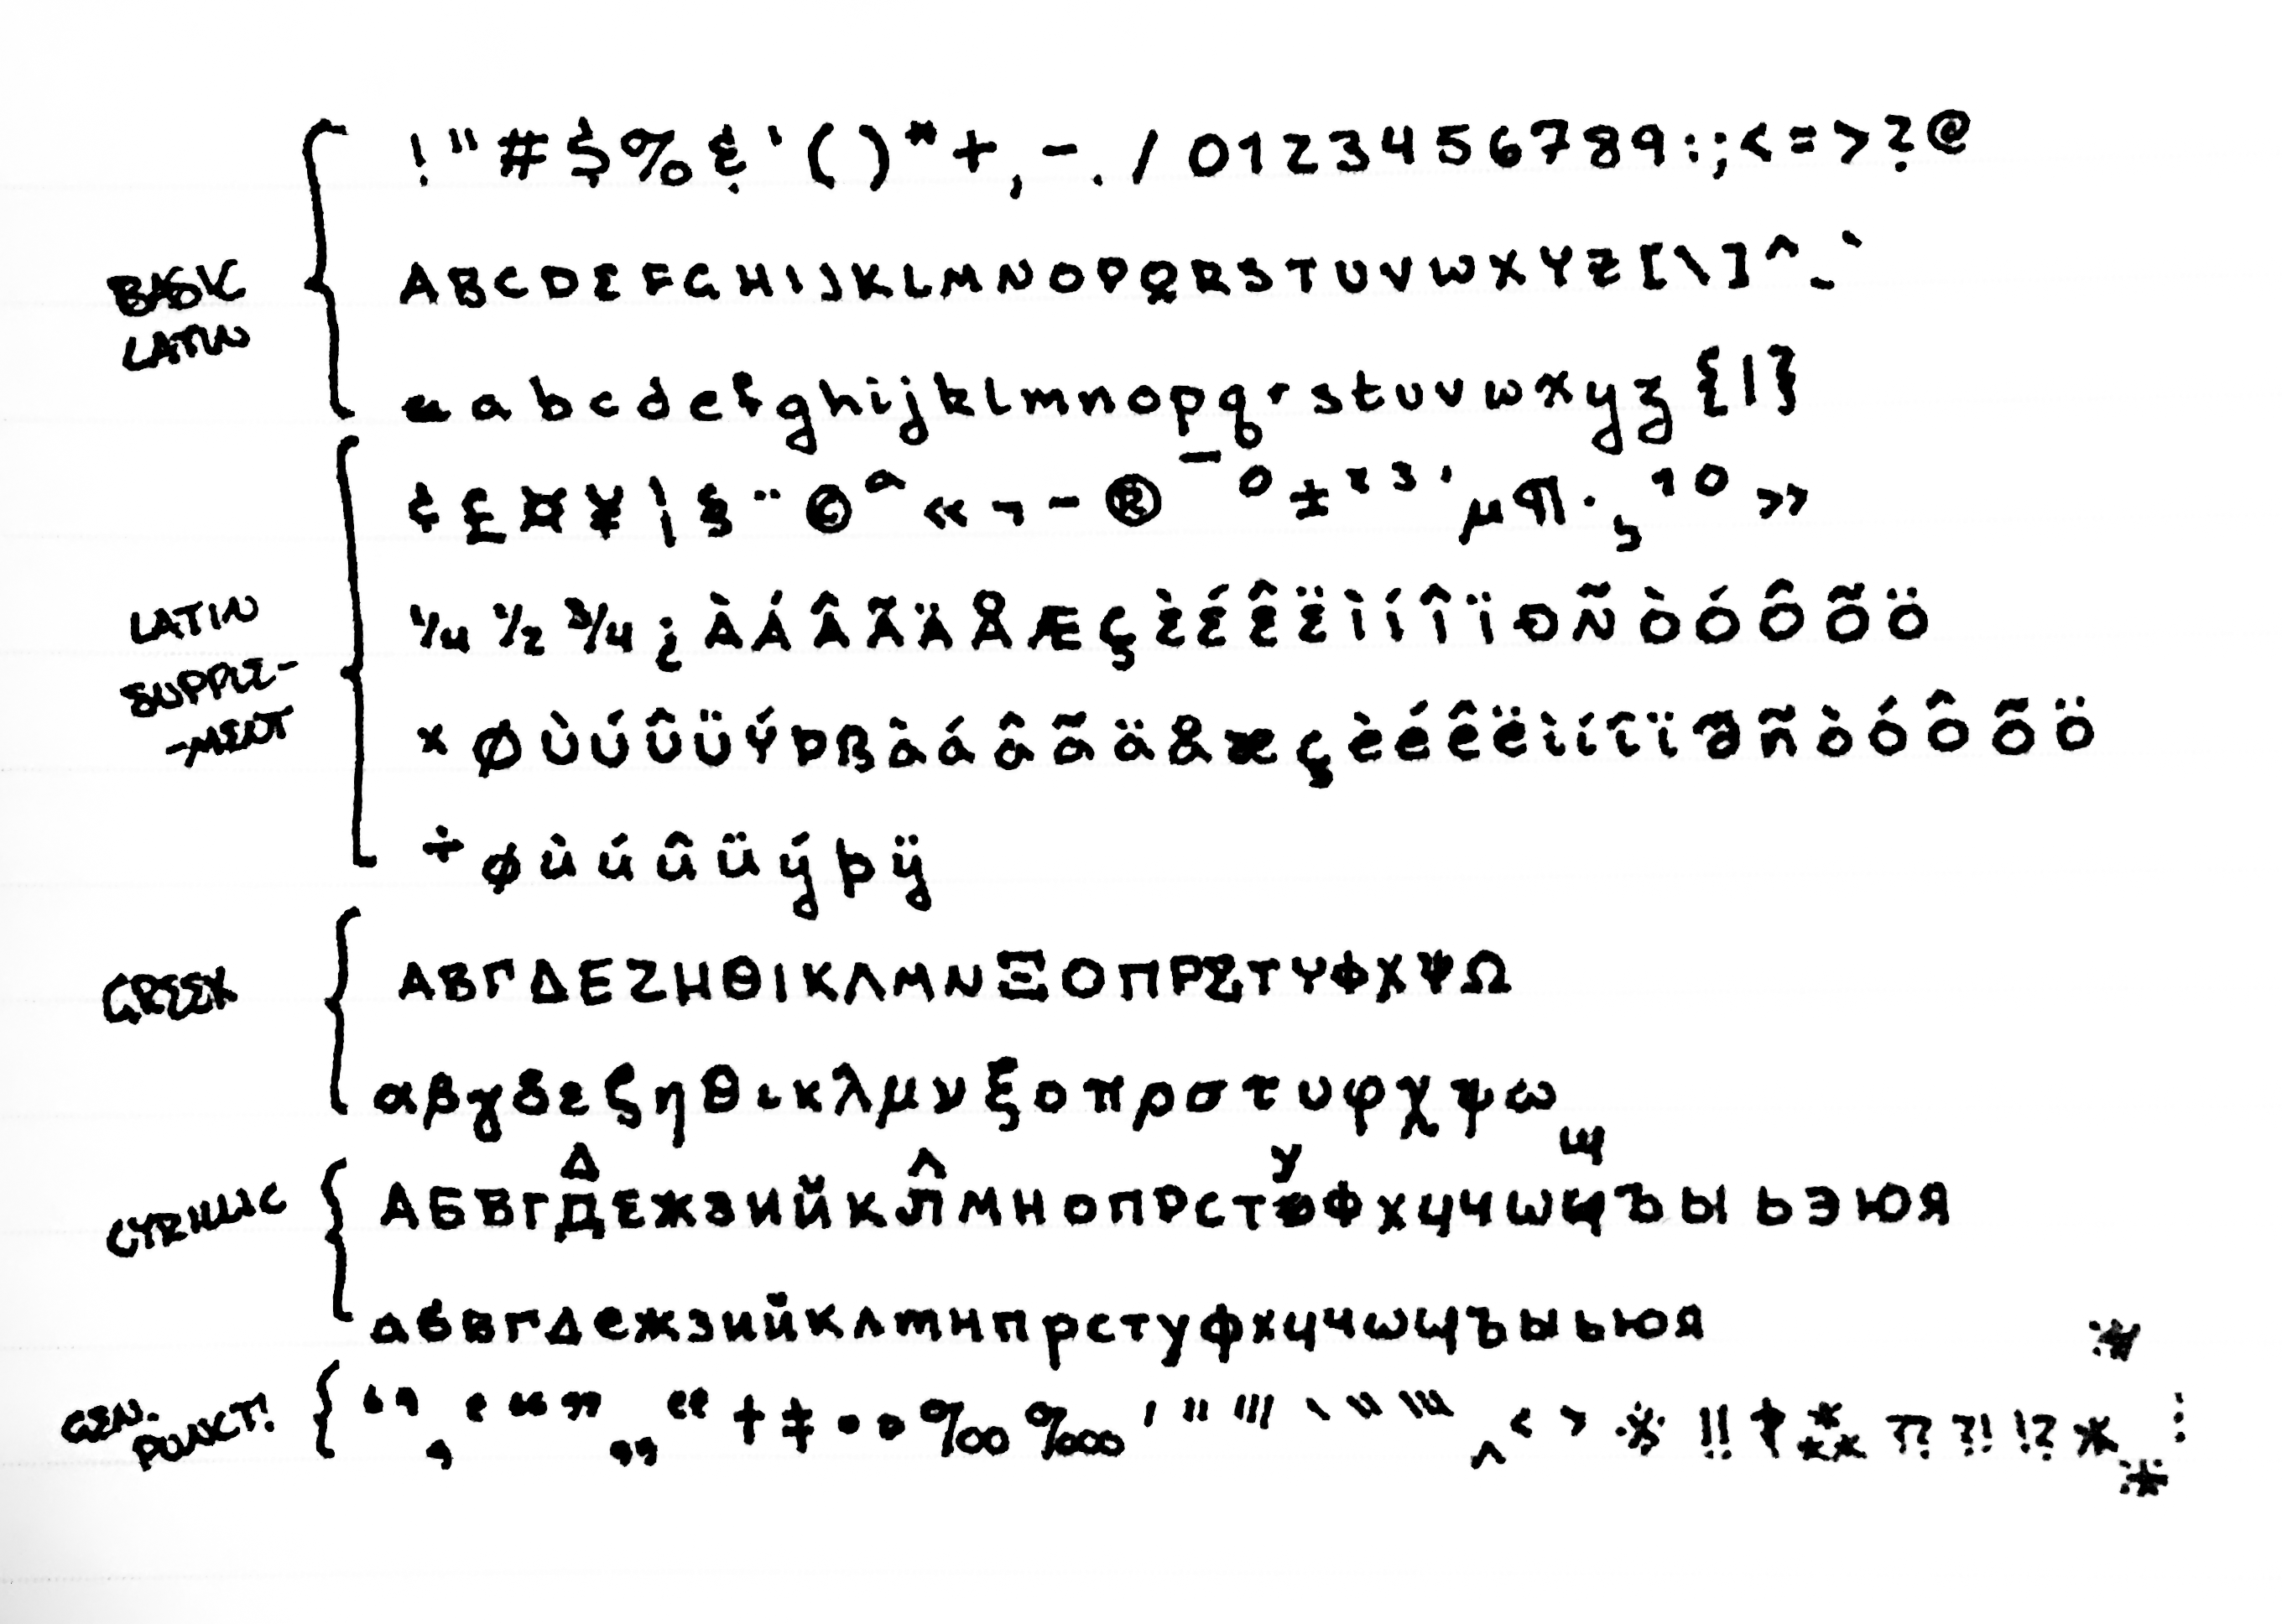 BASIC
LATIN
! " # $ % & ' ( ) * + , - . / 0 1 2 3 4 5 6 7 8 9 : ; < = > ? @
A B C D E F G H I J K L M N O P Q R S T U V W X Y Z [ \ ] ^ _ `
a b c d e f g h i j k l m n o p q r s t u v w x y z { | }
LATIN
SUPPLE-
-MENT
¢ £ ¤ ¥ ¦ § ¨ © ª « ¬ - ® ¯ ° ± ² ³ ´ µ ¶ · ¸ ¹ º »
¼ ½ ¾ ¿ À Á Â Ã Ä Å Æ Ç È É Ê Ë Ì Í Î Ï Ð Ñ Ò Ó Ô Õ Ö
× Ø Ù Ú Û Ü Ý Þ ß à á â ã ä å æ ç è é ê ë ì í î ï ð ñ ò ó ô õ ö
÷ ø ù ú û ü ý þ ÿ
GREEK
Α Β Γ Δ Ε Ζ Η Θ Ι Κ Λ Μ Ν Ξ Ο Π Ρ Σ Τ Υ Φ Χ Ψ Ω
α β γ δ ε ζ η θ ι κ λ μ ν ξ ο π ρ σ τ υ φ χ ψ ω
CYRILLIC
Δ Λ У Щ
А Б В Г Д Е Ж З И Й К Л М Н О П Р С Т Ф Х Ц Ч Ш Щ Ъ Ы Ь Э Ю Я
а б в г д е ж з и й к л м н п р с т у ф х ц ч ш щ ъ ы ь ю я
GEN.
PUNCT!
‘ ’ ‚ ‛ “ ” „ ‟ † ‡ • • ‰ ‱ ′ ″ ‴ ‵ ‶ ‷ ‸ ‹ › ※ ‼ ⁂ ⁇ ⁈ ⁉ * ⁝